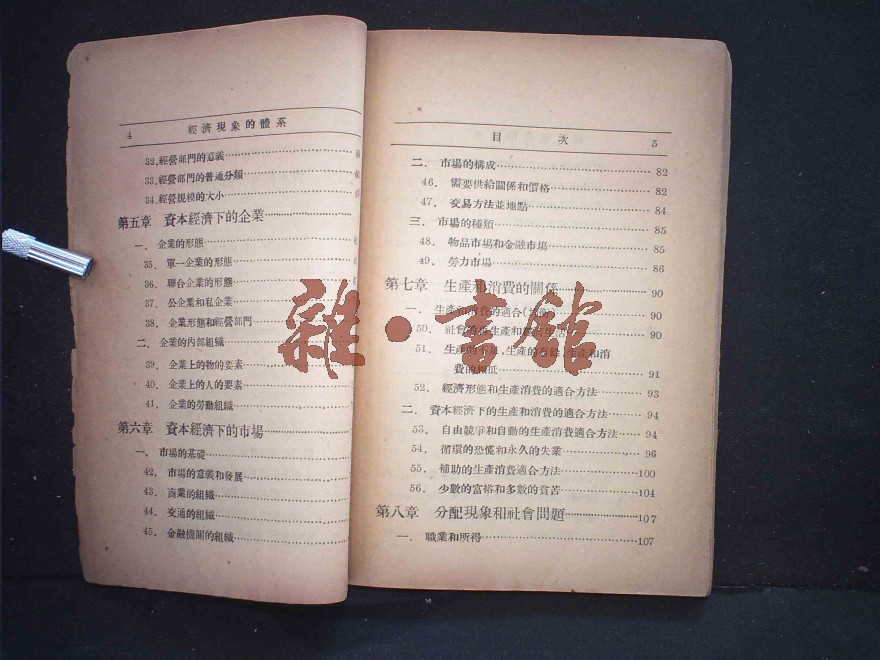 4 經濟現象的體系
32.經營部門的意義
33.經營部門的普通分類
34.經營規模的大小
第五章 資本經濟下的企業
一. 企業的形態
35. 單一企業的形態
36. 聯合企業的形態
37. 公企業和私企業
38. 企業形態和經營部門
二. 企業的內部組織
39. 企業上的物的要素
40. 企業上的人的要素
41. 企業的勞動組織
第六章 資本經濟下的市場
一. 市場的基礎
42. 市場的意義和發展
43. 商業的組織
44. 交通的組織
45. 金融機關的組織
目次 5
二. 市場的構成 82
46. 需要供給關係和價格 82
47. 交易方法並地點 84
三. 市場的種類 85
48. 物品市場和金融市場 85
49. 勞力市場 86
第七章 生產和消費的關係 90
一. 生產和消費的適合 90
50. 社會的生產和 生活 90
51. 生產的 生產的 生產和消
費的 91
52. 經濟形態和生產消費的適合方法 93
二. 資本經濟下的生產和消費的適合方法 94
53. 自由競爭和自動的生產消費適合方法 94
54. 循環的恐慌和永久的失業 96
55. 補助的生產消費適合方法 100
56. 少數的富裕和多數的貧苦 104
第八章 分配現象和社會問題 107
一. 職業和所得 107
雜·書館